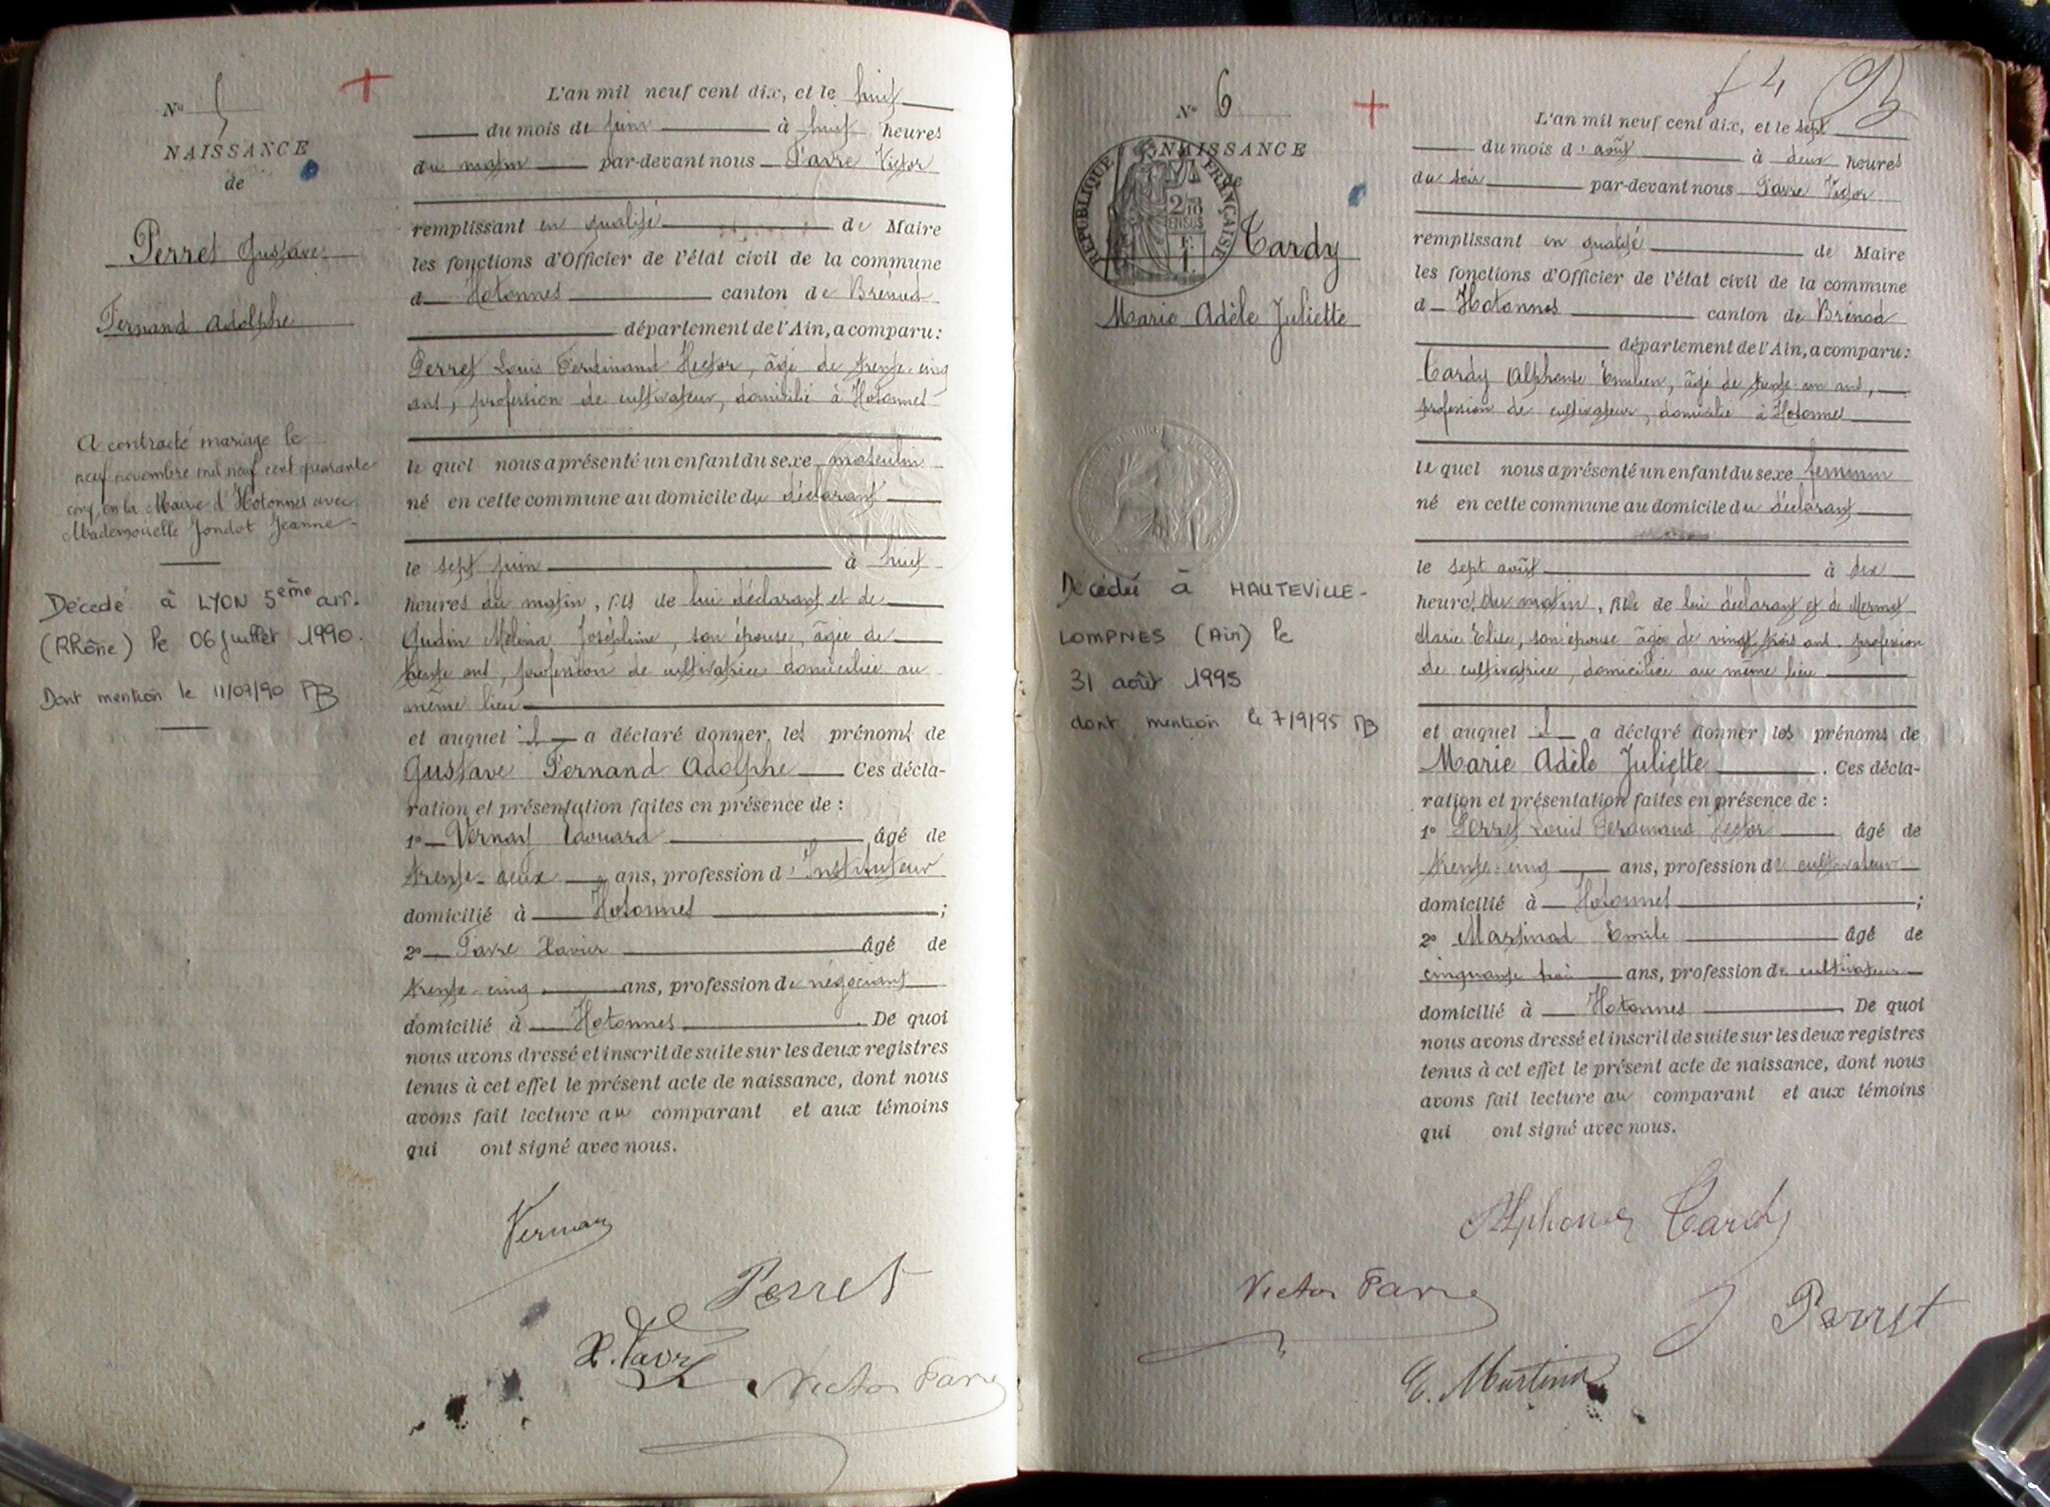 N° 5
NAISSANCE
de
Perret Gustave
Fernand Adolphe
A contracté mariage le
neuf novembre mil neuf cent quarante
cinq en la Mairie d'Hotonnes avec
Mademoiselle Jondot Jeanne
Décédé à LYON 5ème arr.
(Rhône) le 06 juillet 1990.
Dont mention le 11/07/90
L'an mil neuf cent dix, et le huit
du mois de juin à huit heures
du matin par-devant nous Favre Victor
remplissant en qualité de Maire
les fonctions d'Officier de l'état civil de la commune
d Hotonnes canton de Brénod
département de l'Ain, a comparu:
Perret Louis Ferdinand Hector, âgé de trente-cinq
ans, profession de cultivateur, domicilié à Hotonnes
le quel nous a présenté un enfant du sexe masculin
né en cette commune au domicile du déclarant
le sept juin à huit
heures du matin, fils de lui déclarant et de
Gudin Mélina Joséphine, son épouse, âgée de
trente ans, profession de cultivatrice domiciliée au
même lieu
et auquel il a déclaré donner les prénoms de
Gustave Fernand Adolphe Ces décla-
ration et présentation faites en présence de :
1° Vernay Edouard âgé de
trente-deux ans, profession d'Instituteur
domicilié à Hotonnes ;
2° Favre Xavier âgé de
trente-cinq ans, profession de négociant
domicilié à Hotonnes. De quoi
nous avons dressé et inscrit de suite sur les deux registres
tenus à cet effet le présent acte de naissance, dont nous
avons fait lecture au comparant et aux témoins
qui ont signé avec nous.
Vernay
Perret
X. Favre
Victor Favre
N° 6
NAISSANCE
de
RÉPUBLIQUE FRANÇAISE
2/10 EN SUS
Tardy
Marie Adèle Juliette
Décédée à HAUTEVILLE-
LOMPNES (Ain) le
31 août 1995
dont mention le 7/9/95
L'an mil neuf cent dix, et le sept
du mois d'août à deux heures
du soir par-devant nous Favre Victor
remplissant en qualité de Maire
les fonctions d'Officier de l'état civil de la commune
d Hotonnes canton de Brénod
département de l'Ain, a comparu:
Tardy Alphonse Emilien, âgé de trente-un ans,
profession de cultivateur, domicilié à Hotonnes
le quel nous a présenté un enfant du sexe féminin
né en cette commune au domicile du déclarant
le sept août à dix
heures du matin, fille de lui déclarant et de Mermet
Marie Elise, son épouse âgée de vingt trois ans. profession
de cultivatrice, domiciliée au même lieu
et auquel il a déclaré donner les prénoms de
Marie Adèle Juliette. Ces décla-
ration et présentation faites en présence de :
1° Perret Louis Ferdinand Hector âgé de
trente-cinq ans, profession de cultivateur
domicilié à Hotonnes ;
2° Martinod Emile âgé de
cinquante trois ans, profession de cultivateur
domicilié à Hotonnes. De quoi
nous avons dressé et inscrit de suite sur les deux registres
tenus à cet effet le présent acte de naissance, dont nous
avons fait lecture au comparant et aux témoins
qui ont signé avec nous.
Alphonse Tardy
Victor Favre
Perret
E. Martinod